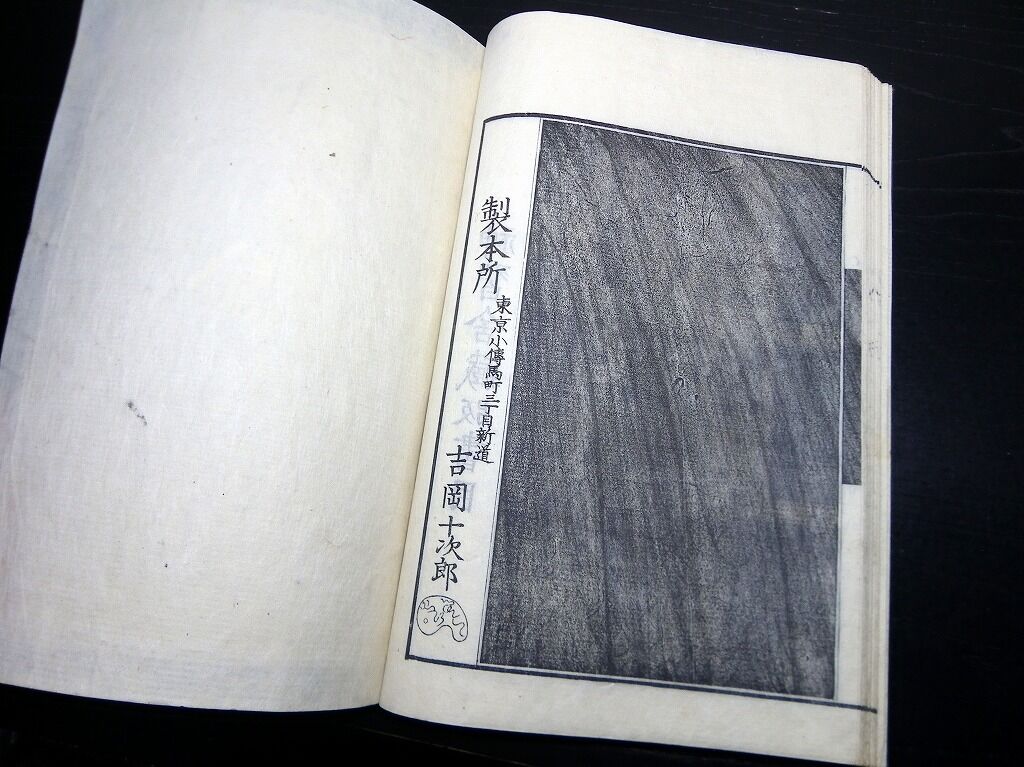 製本所
東京小傳馬町三丁目新道
吉岡十次郎